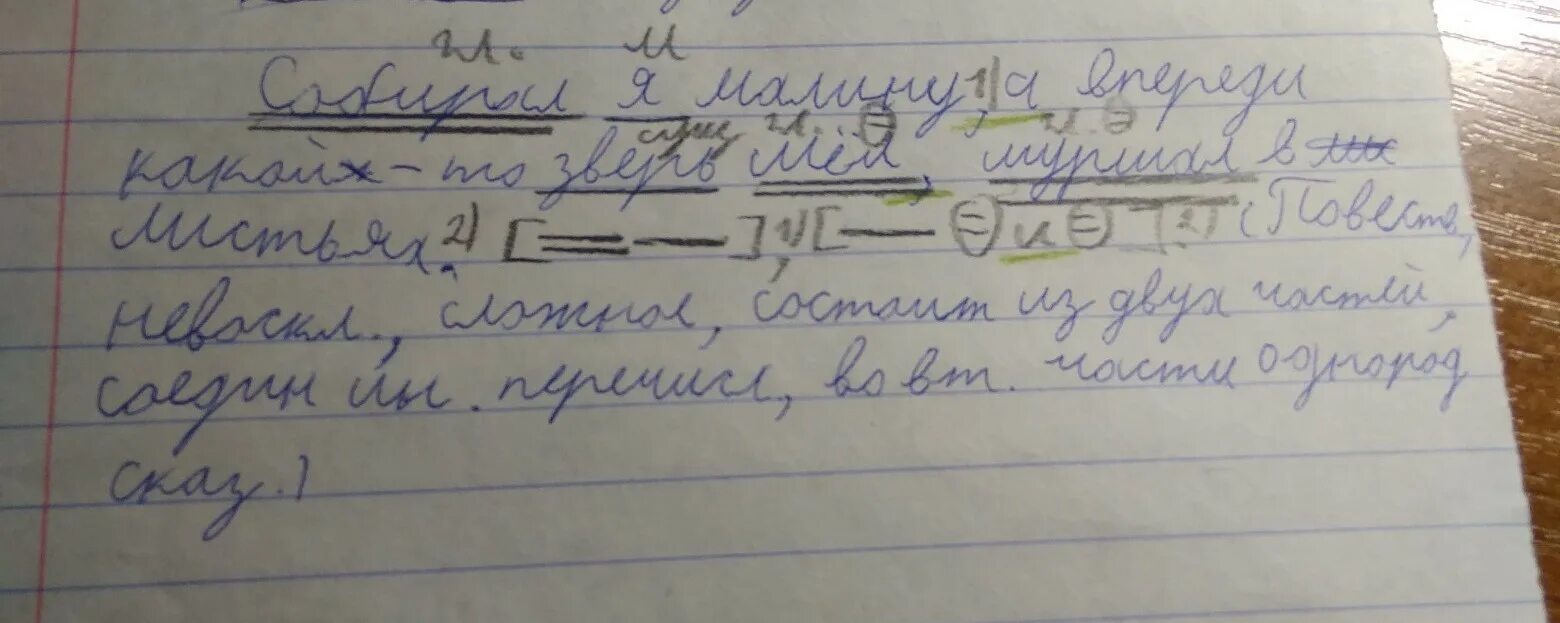 гл. м
Собирал я малину, 1) а впереди
сущ гл. ⊖ гл. ⊖
какой-то зверь шёл, шуршал в
листьях. 2) [═ —], 1) [— ⊖ и ⊖] 2) (Повеств,
невоскл., сложное, состоит из двух частей,
соедин ин. перечисл, во вт. части однород
сказ.)